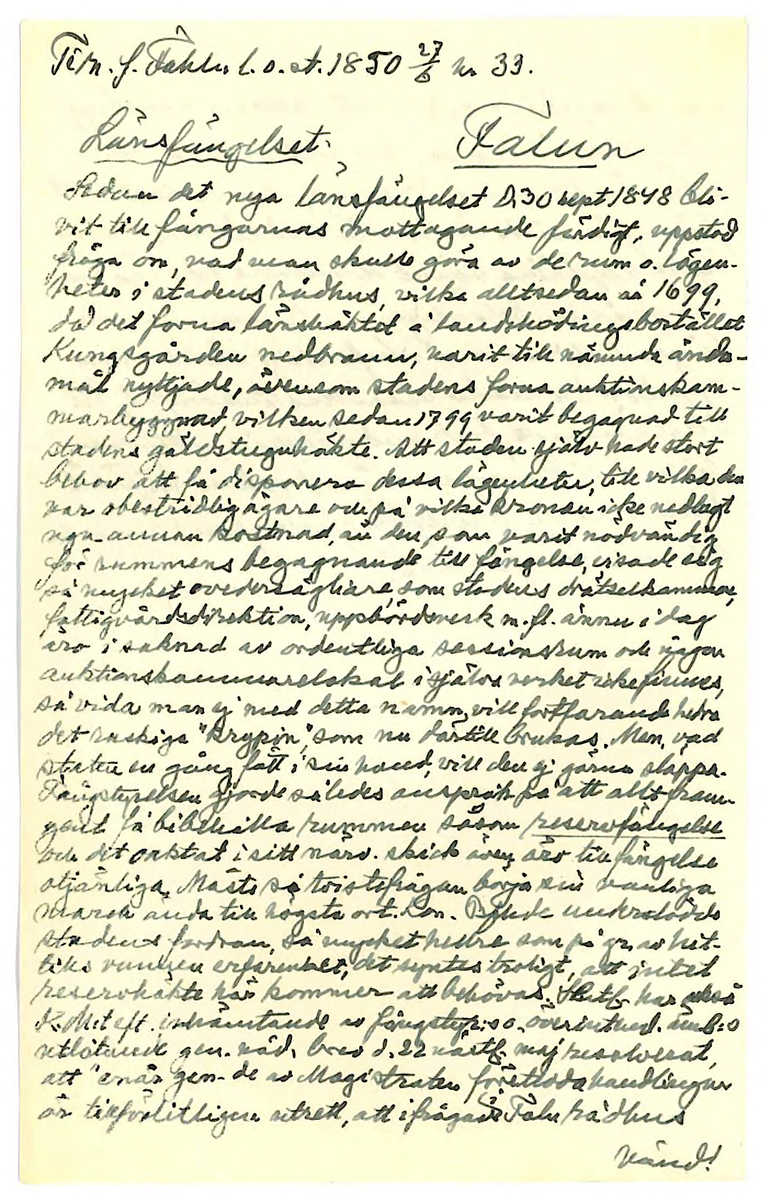 Tidn. f. Fahlu l. o. st. 1850 27/6 nr 33.
Länsfängelset. Falun
Sedan det nya länsfängelset d. 30 sept 1848 bli-
vit till fångarnas mottagande färdigt, uppstod
fråga om, vad man skulle göra av de rum o. lägen-
heter i stadens rådhus, vilka alltsedan år 1699,
då det forna länshäktet å landshödingsbostället
Kungsgården nedbrann, varit till nämnda ända-
mål nyttjade, ävensom stadens forna auktionskam-
marbyggnad, vilken sedan 1799 varit begagnad till
stadens gäldstuguhäkte. Att staden själv hade stort
behov att få disponera dessa lägenheter, till vilka den
var obestridlig ägare och på vilka kronan icke nedlagt
ngn annan kostnad, än den, som varit nödvändig
för rummens begagnande till fängelse, visade sig
så mycket ovedersägligare, som stadens drätselkammare,
fattigvårdsdirektion, uppbördsverk m.fl. ännu i dag
äro i saknad av ordentliga sessionsrum och någon
auktionskammarelokal i själva verket icke finnes,
så vida man ej med detta namn vill fortfarande hedra
det ruskiga "krypin", som nu därtill brukas. Men, vad
staten en gång fått i sin hand, vill den ej gärna släppa.
Fångstyrelsen gjorde således anspråk på att allt fram-
gent få bibehålla rummen såsom reservfängelse
och det oaktat i sitt närv. skick även äro till fängelse
otjänliga. Måste så tvistefrågan börja sin vanliga
marsch ända till högsta ort. Kon. Bfhde understödde
stadens fordran, så mycket hellre som på gr. av hit-
tills vunnen erfarenhet, det syntes troligt, att intet
reservhäkte här kommer att behövas. Slutl. har också
K. M:t eft. inhämtande av fångstyr:s o. överintend. ämb:s
utlåtande gen. nåd. brev d. 22 nästl. maj resolverat,
att "enär gen. de av Magistraten företedda handlingar
är tillförlitligen utrett, att ifrågav. Falu rådhus
Vänd!